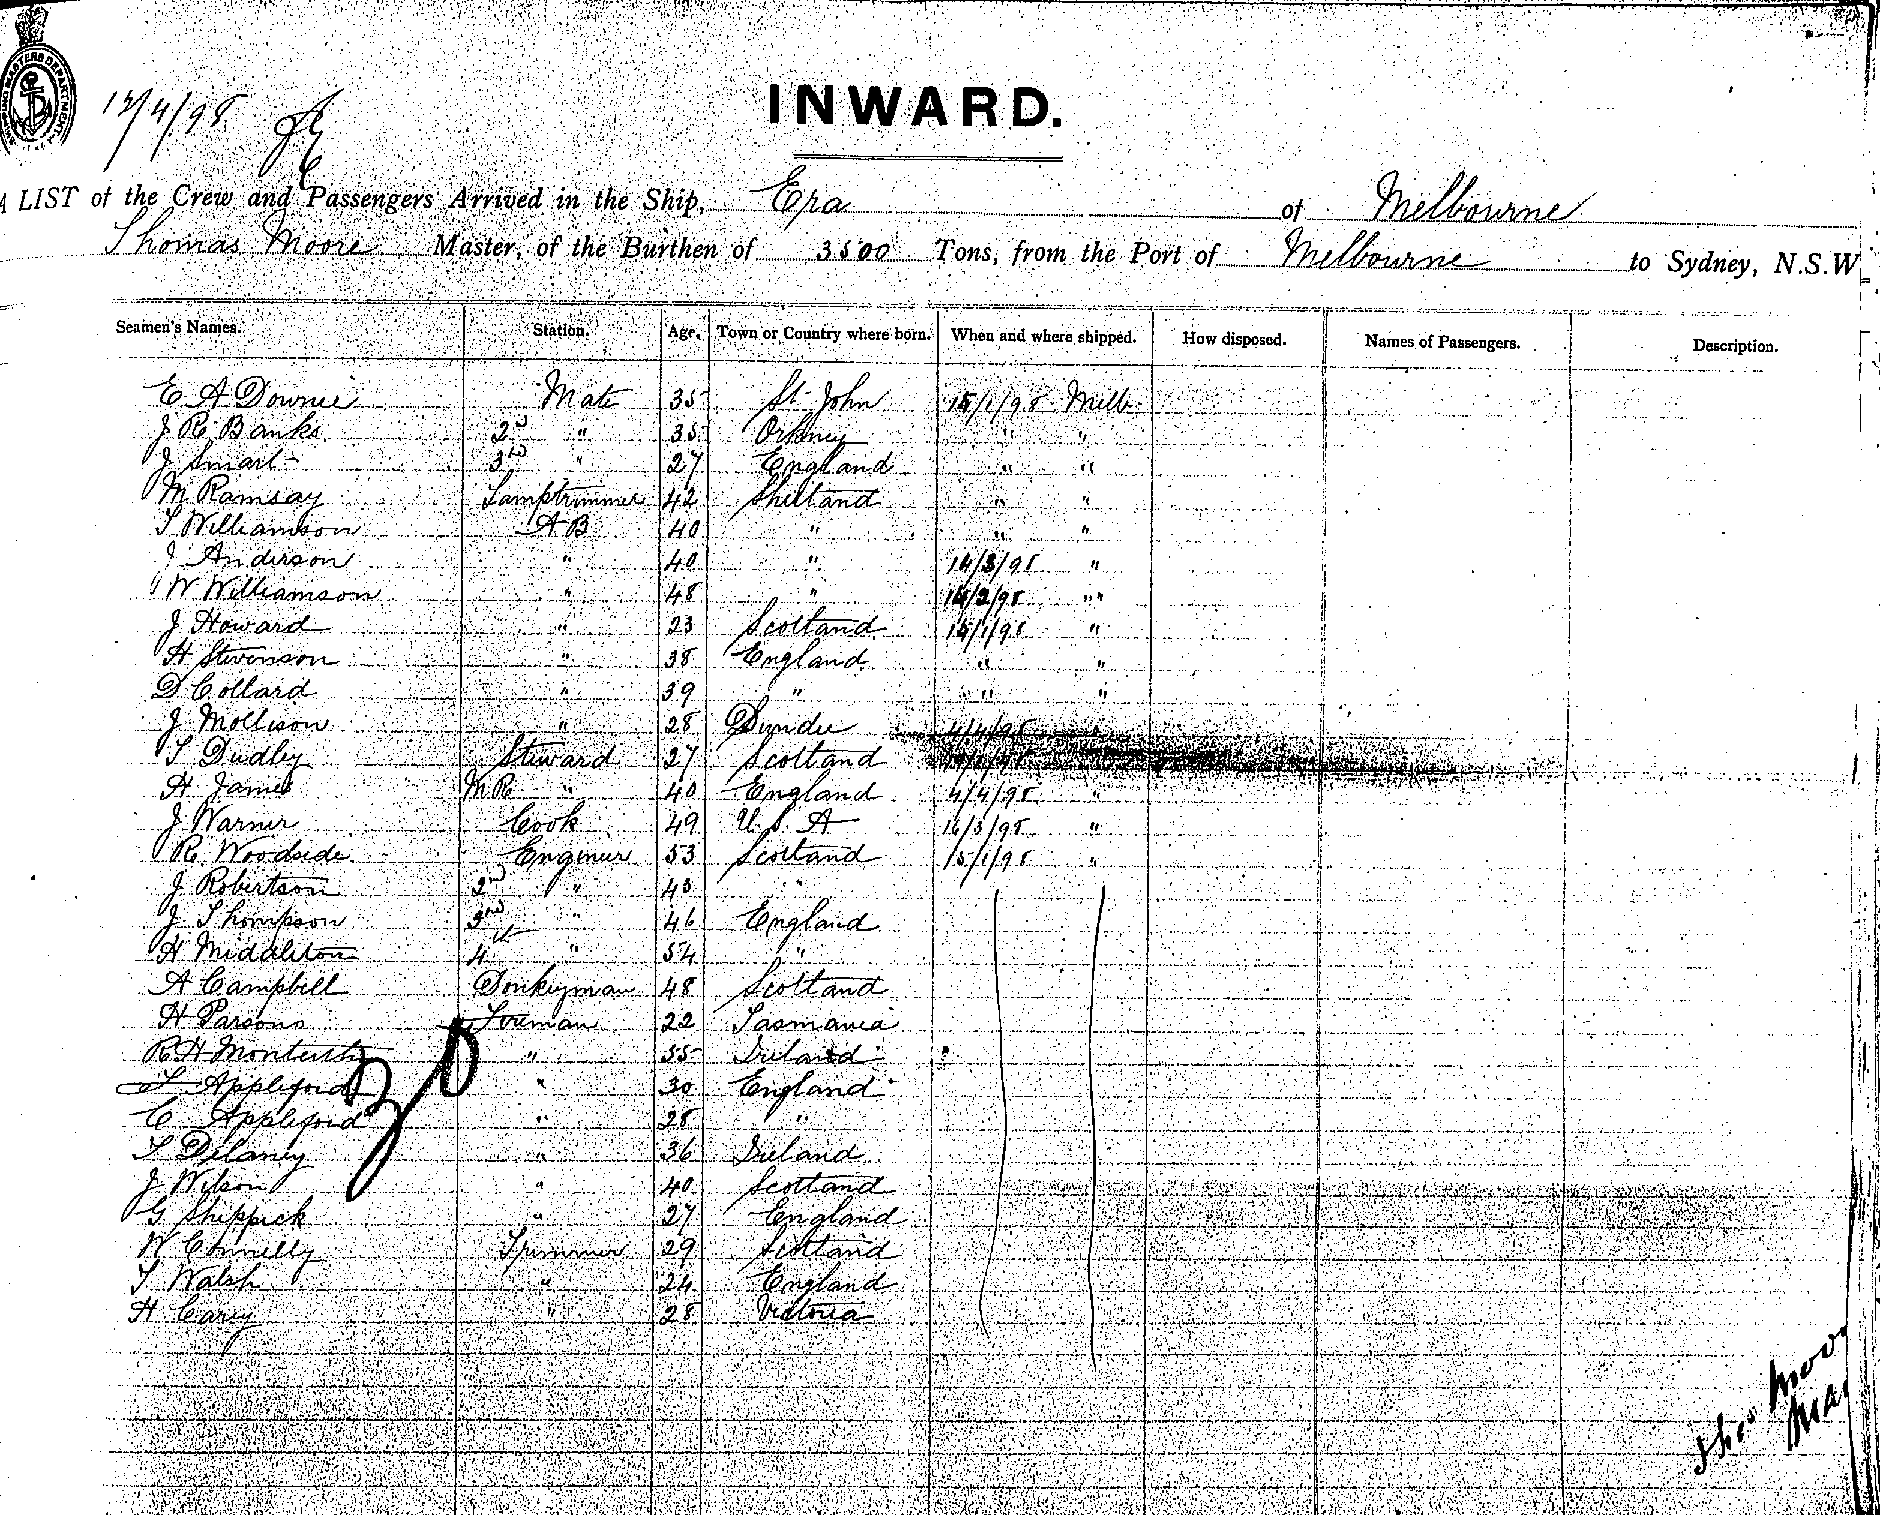 12/4/98
INWARD.
A LIST of the Crew and Passengers Arrived in the Ship, Era of Melbourne
Thomas Moore Master, of the Burthen of 3500 Tons, from the Port of Melbourne to Sydney, N.S.W.
Seamen's Names. Station. Age. Town or Country where born. When and where shipped. How disposed. Names of Passengers. Description.
E A Downie Mate 35 St John 15/1/98 Melb.
J R Banks 2nd " 35 Orkney " "
J Smart 3rd " 27 England " "
M Ramsay Lamptrimmer 42 Shetland " "
T Williamson A B 40 " " "
J Anderson " 40 " "
W Williamson " 48 " "
J Howard " 23 Scotland 15/1/98 "
H Stevenson " 38 England " "
D Collard " 39 " " "
J Mollison " 28 Dundee 4/4/98 "
T Dudley Steward 27 Scotland
H James M.R. " 40 England 4/4/98 "
J Warner Cook 49 U.S.A "
R Woodside Engineer 53 Scotland 15/1/98 "
J Robertson 2nd " 43 "
J Thompson 3rd " 46 England
H Middleton 4th " 54 "
A Campbell Donkeyman 48 Scotland
H Parsons Fireman 22 Tasmania
R H Monteith " 35 Ireland
T Appleford " 30 England
C Appleford " 28 "
T Delaney " 36 Ireland
J Wilson " 40 Scotland
G Shippick " 27 England
W Connelly Trimmer 29 Scotland
T Walsh " 24 England
H Carey " 28 Victoria
Thos Moor